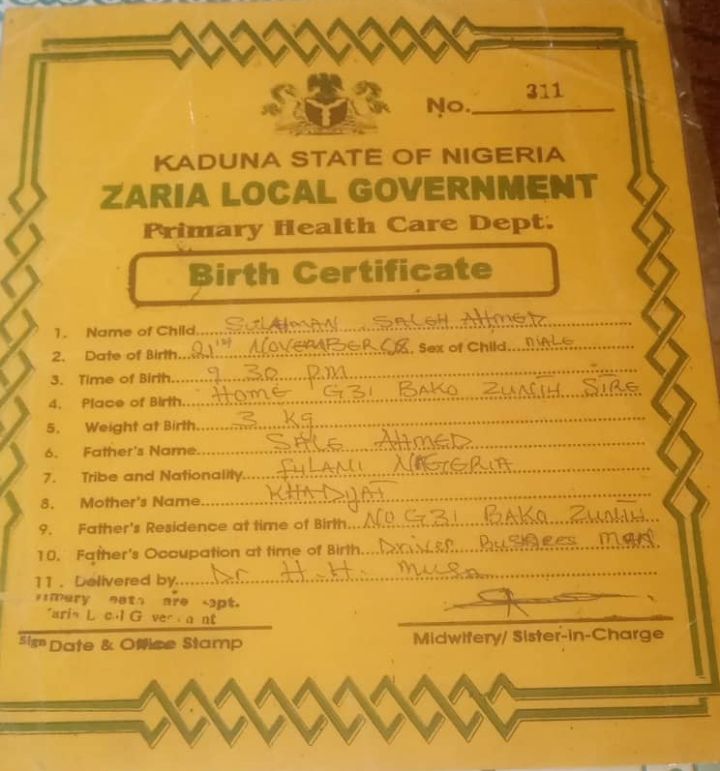 No. 311
KADUNA STATE OF NIGERIA
ZARIA LOCAL GOVERNMENT
Primary Health Care Dept.
Birth Certificate
1. Name of Child SULAIMAN SALEH AHMED
2. Date of Birth 21ST NOVEMBER 68. Sex of Child MALE
3. Time of Birth 9 30 P.M
4. Place of Birth HOME G31 BAKO ZUNTU
5. Weight at Birth 3 Kg
6. Father's Name SALE AHMED
7. Tribe and Nationality FULANI NAGERIA
8. Mother's Name KHADIJAT
9. Father's Residence at time of Birth NO G31 BAKO ZUNTU
10. Father's Occupation at time of Birth Driver
11. Delivered by Dr H.H. Musa
Sign Date & Office Stamp
Midwifery/ Sister-in-Charge